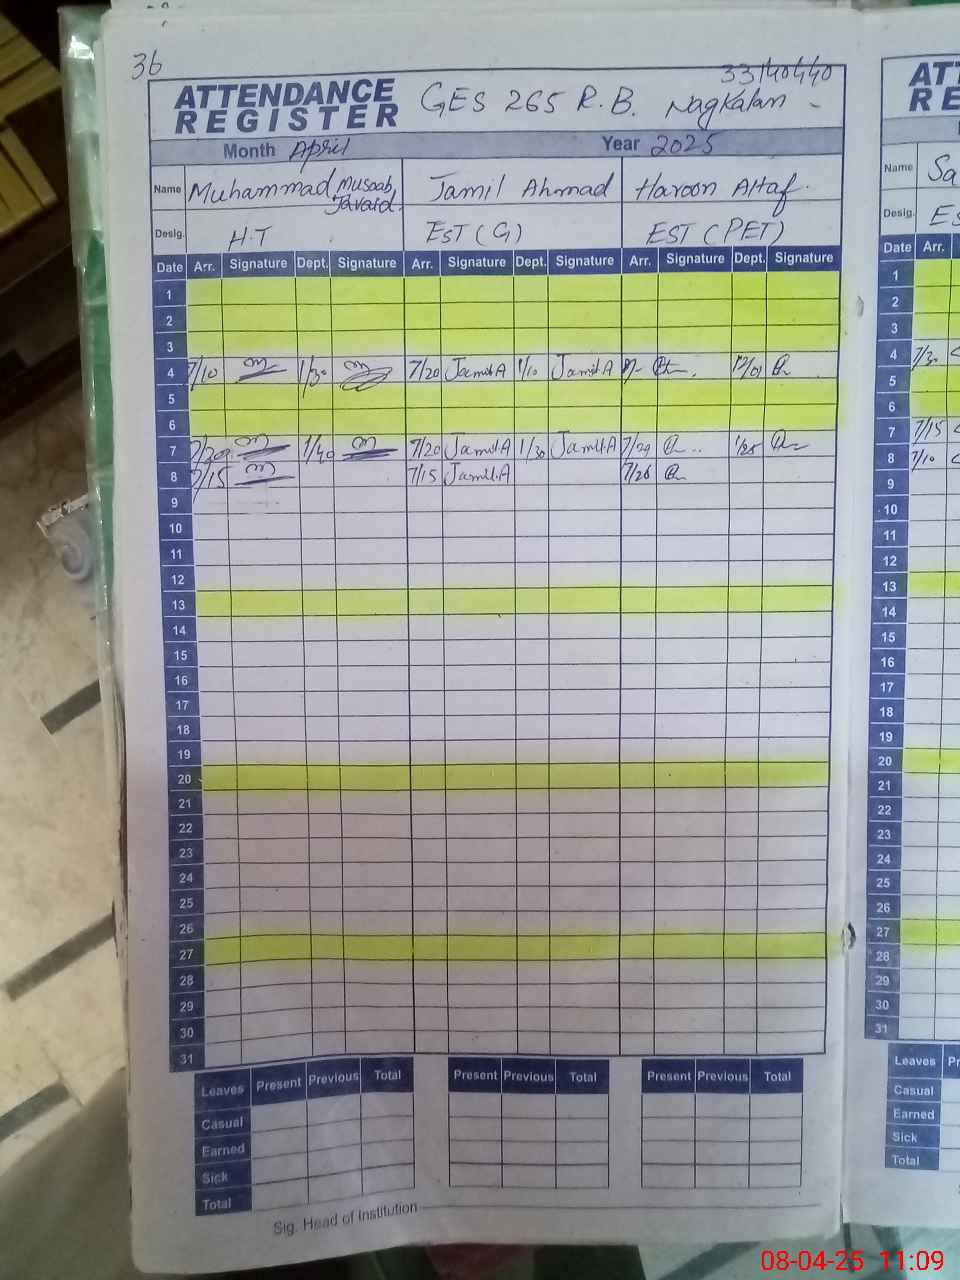 36
33140440
ATTENDANCE REGISTER GES 265 R.B. Nagkalan
Month April Year 2025
Name Muhammad Musaab Javaid Jamil Ahmad Haroon Altaf
Desig. H.T EST (G) EST (PET)
Date Arr. Signature Dept. Signature Arr. Signature Dept. Signature Arr. Signature Dept. Signature
1
2
3
4 7/10 1/30 7/20 Jamil.A 1/10 Jamil.A
5
6
7 1/40 7/20 Jamil.A 1/30 Jamil.A 7/29 1/25
8 7/15 7/15 Jamil.A 7/26
9
10
11
12
13
14
15
16
17
18
19
20
21
22
23
24
25
26
27
28
29
30
31
Leaves Present Previous Total Present Previous Total Present Previous Total
Casual
Earned
Sick
Total
Sig. Head of Institution
Name Sa
Desig. Es
Date Arr.
1
2
3
4 7/30
5
6
7 7/15
8 7/10
9
10
11
12
13
14
15
16
17
18
19
20
21
22
23
24
25
26
27
28
29
30
31
Leaves
Casual
Earned
Sick
Total
08-04-25 11:09